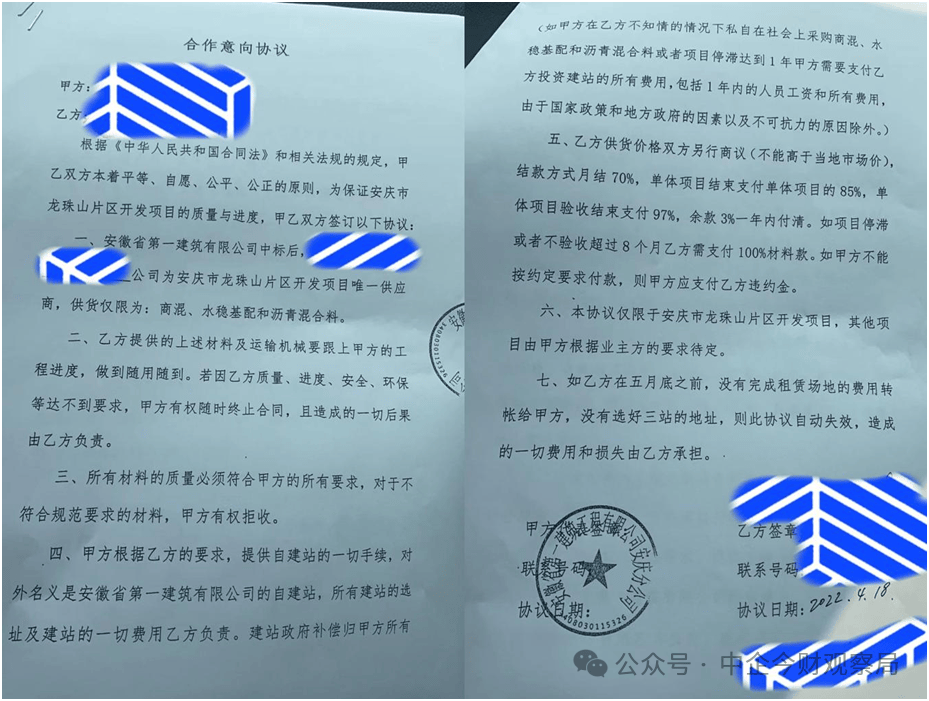 合作意向协议
甲方:
乙方
根据《中华人民共和国合同法》和相关法规的规定，甲
乙双方本着平等、自愿、公平、公正的原则，为保证安庆市
龙珠山片区开发项目的质量与进度，甲乙双方签订以下协议:
一、安徽省第一建筑有限公司中标后，
公司为安庆市龙珠山片区开发项目唯一供应
商，供货仅限为：商混、水稳基配和沥青混合料。
二、乙方提供的上述材料及运输机械要跟上甲方的工
程进度，做到随用随到。若因乙方质量、进度、安全、环保
等达不到要求，甲方有权随时终止合同，且造成的一切后果
由乙方负责。
三、所有材料的质量必须符合甲方的所有要求，对于不
符合规范要求的材料，甲方有权拒收。
四、甲方根据乙方的要求，提供自建站的一切手续，对
外名义是安徽省第一建筑有限公司的自建站，所有建站的选
址及建站的一切费用乙方负责。建站政府补偿归甲方所有
（如甲方在乙方不知情的情况下私自在社会上采购商混、水
稳基配和沥青混合料或者项目停滞达到1年甲方需要支付乙
方投资建站的所有费用，包括1年内的人员工资和所有费用，
由于国家政策和地方政府的因素以及不可抗力的原因除外。）
五、乙方供货价格双方另行商议（不能高于当地市场价），
结款方式月结70%，单体项目结束支付单体项目的85%，单
体项目验收结束支付97%，余款3%一年内付清。如项目停滞
或者不验收超过8个月乙方需支付100%材料款。如甲方不能
按约定要求付款，则甲方应支付乙方违约金。
六、本协议仅限于安庆市龙珠山片区开发项目，其他项
目由甲方根据业主方的要求待定。
七、如乙方在五月底之前，没有完成租赁场地的费用转
帐给甲方，没有选好三站的地址，则此协议自动失效，造成
的一切费用和损失由乙方承担。
甲方签章
联系号码
协议日期:
安徽省第一建筑工程有限公司安庆分公司
3408030115326
乙方签章
联系号码
协议日期: 2022.4.18.
公众号·中企今财观察局